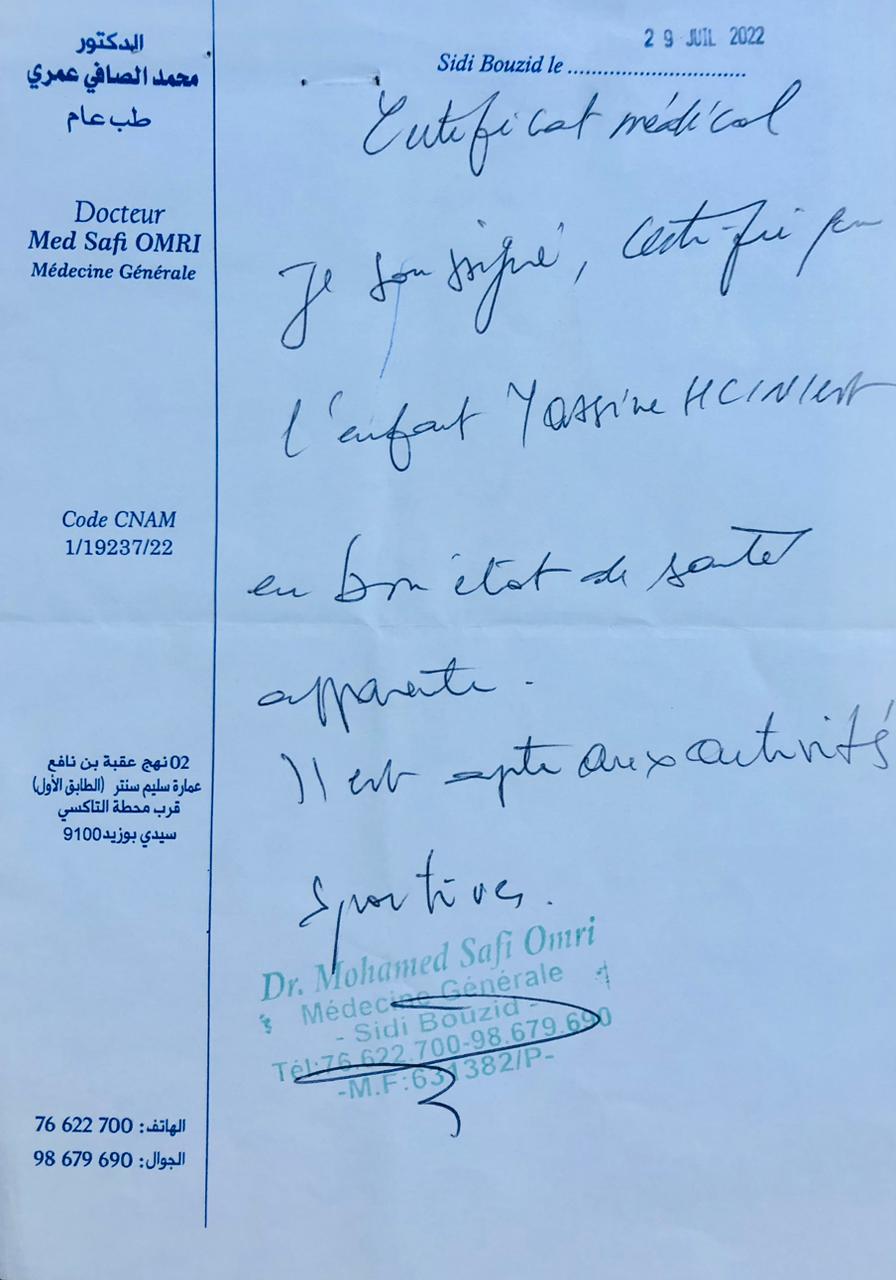 الدكتور
محمد الصافي عمري
طب عام
Docteur
Med Safi OMRI
Médecine Générale
Code CNAM
1/19237/22
02 نهج عقبة بن نافع
عمارة سليم سنتر (الطابق الأول)
قرب محطة التاكسي
سيدي بوزيد 9100
الهاتف: 76 622 700
الجوال: 98 679 690
29 JUIL 2022
Sidi Bouzid le ..............................
Certificat médical
Je soussigné, certifie que
l'enfant Yassine HCINI est
en bon état de santé
apparente.
Il est apte aux activités
sportives.
Dr. Mohamed Safi Omri
Médecine Générale
- Sidi Bouzid -
Tél:76.622.700-98.679.690
-M.F:631382/P-